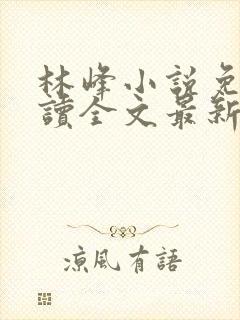 林峰小説免
讀全文最新
涼風有語